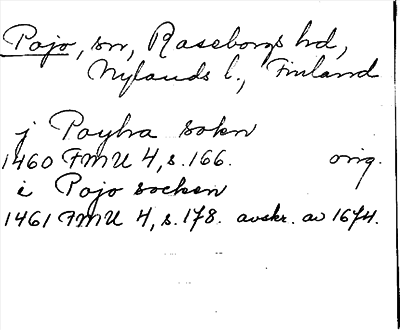 Pojo, sn, Raseborgs hd,
Nylands l., Finland
j Poyha sokn
1460 FMU 4, s. 166. orig.
i Pojo socken
1461 FMU 4, s. 178. avskr. av 1674.